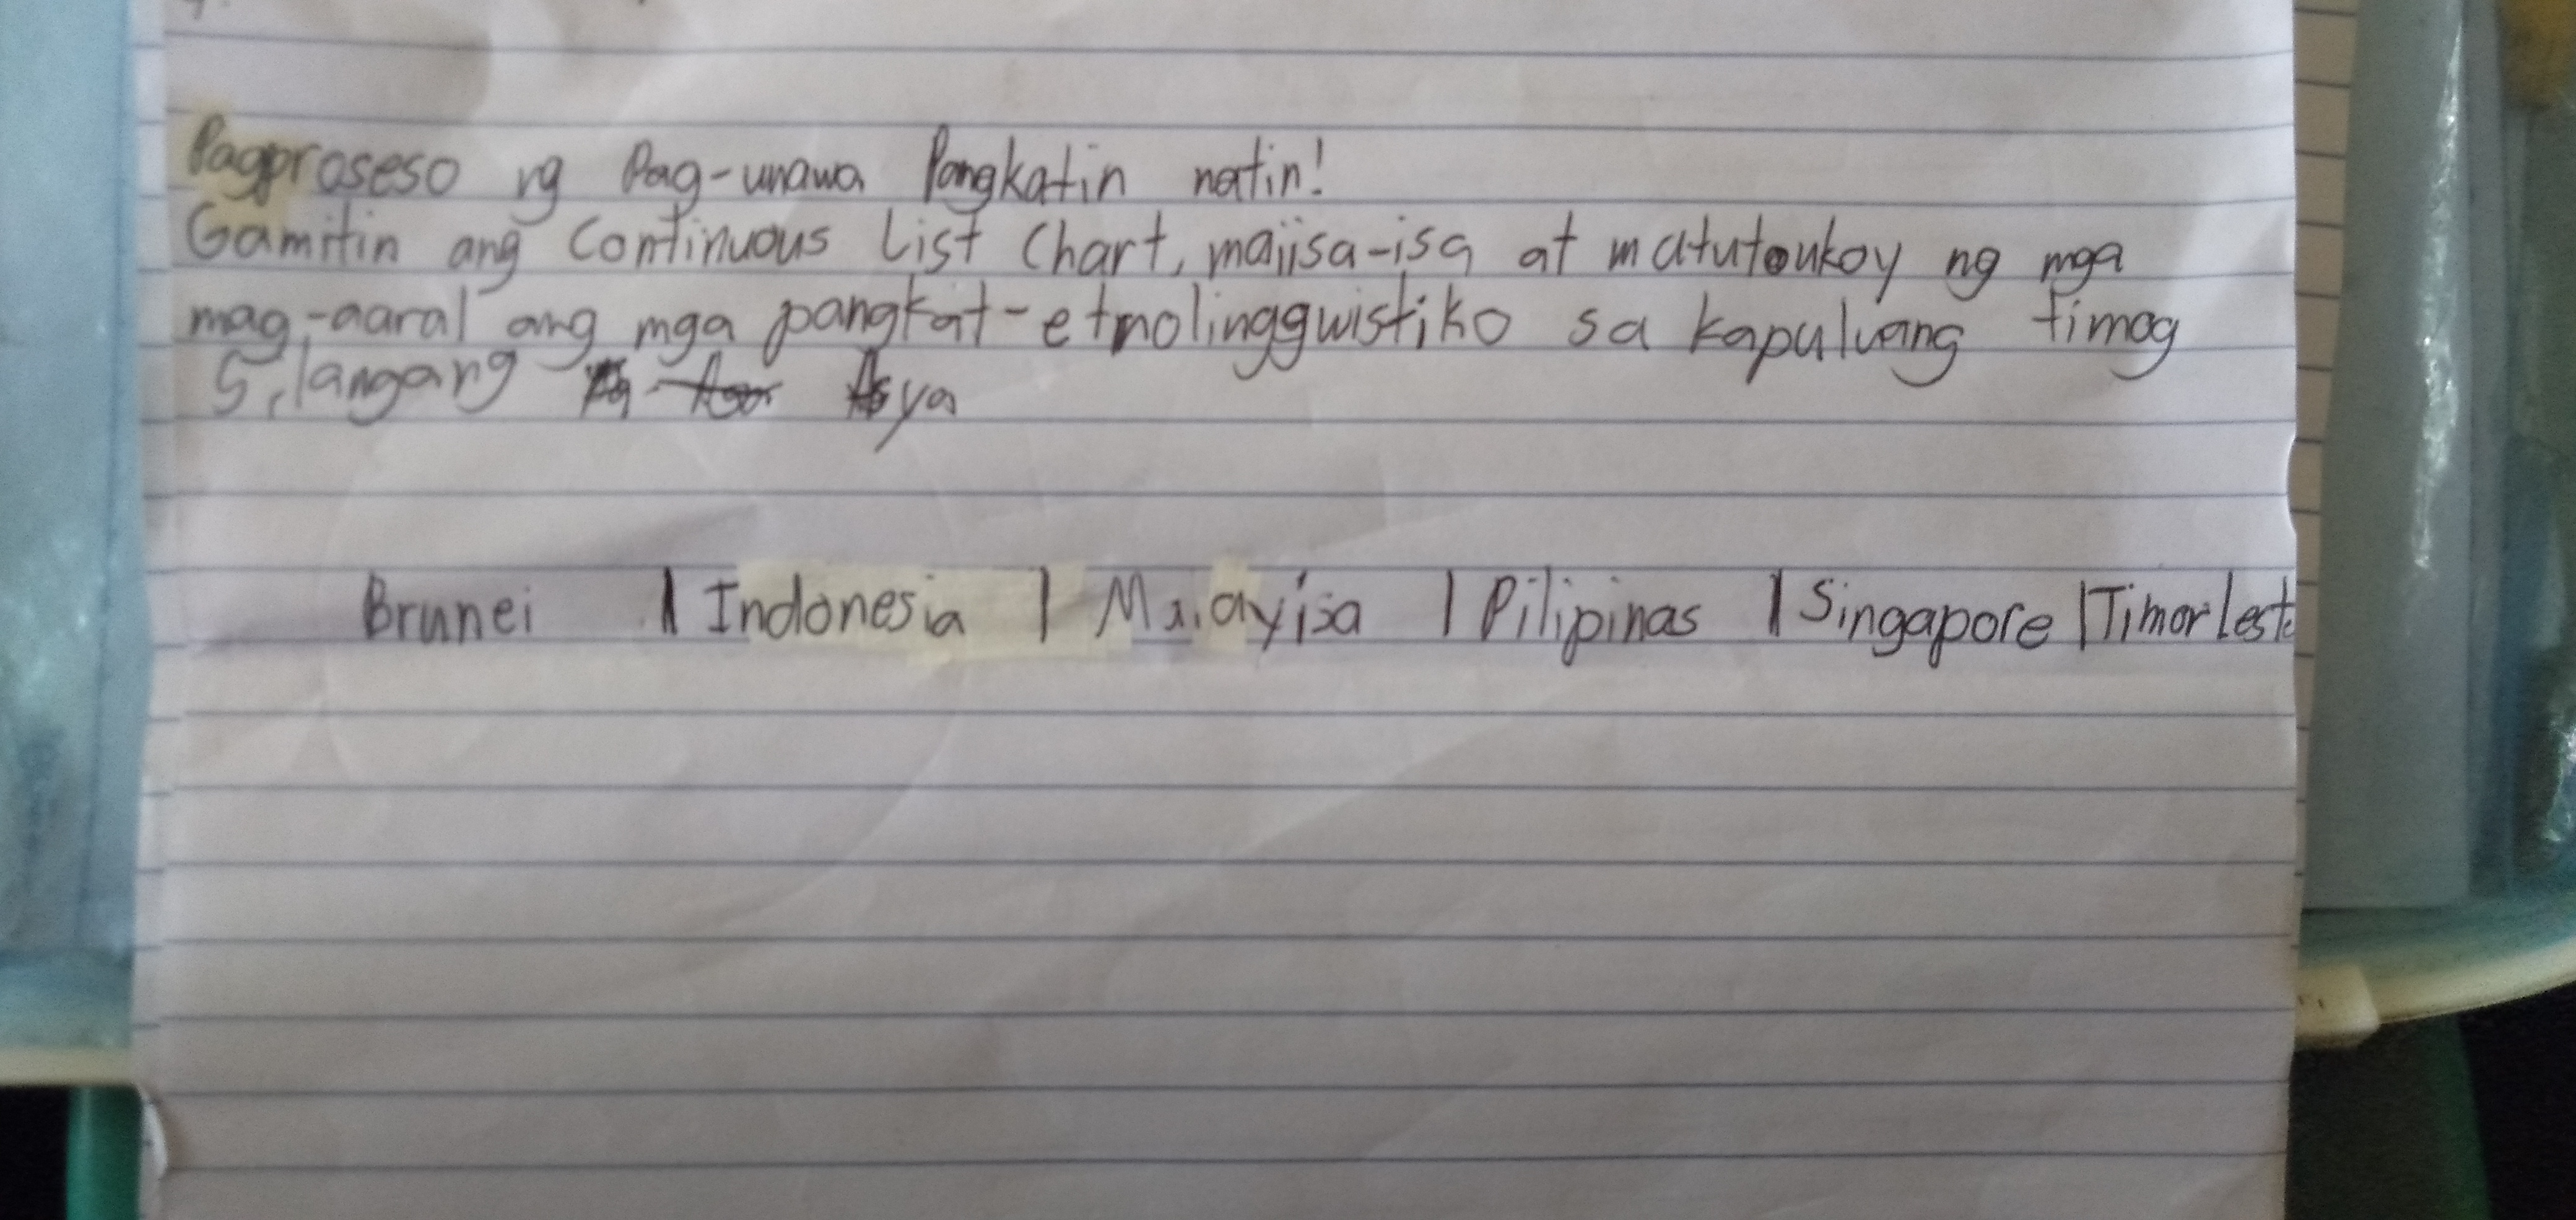 Pagproseso ng Pag-unawa Pangkatin natin!
Gamitin ang Continuous List Chart, maiisa-isa at matutoukoy ng mga
mag-aaral ang mga pangkat-etnolingguwistiko sa kapuluang timog
Silangang Asya
Brunei | Indonesia | Malayisa | Pilipinas | Singapore | Timor Leste